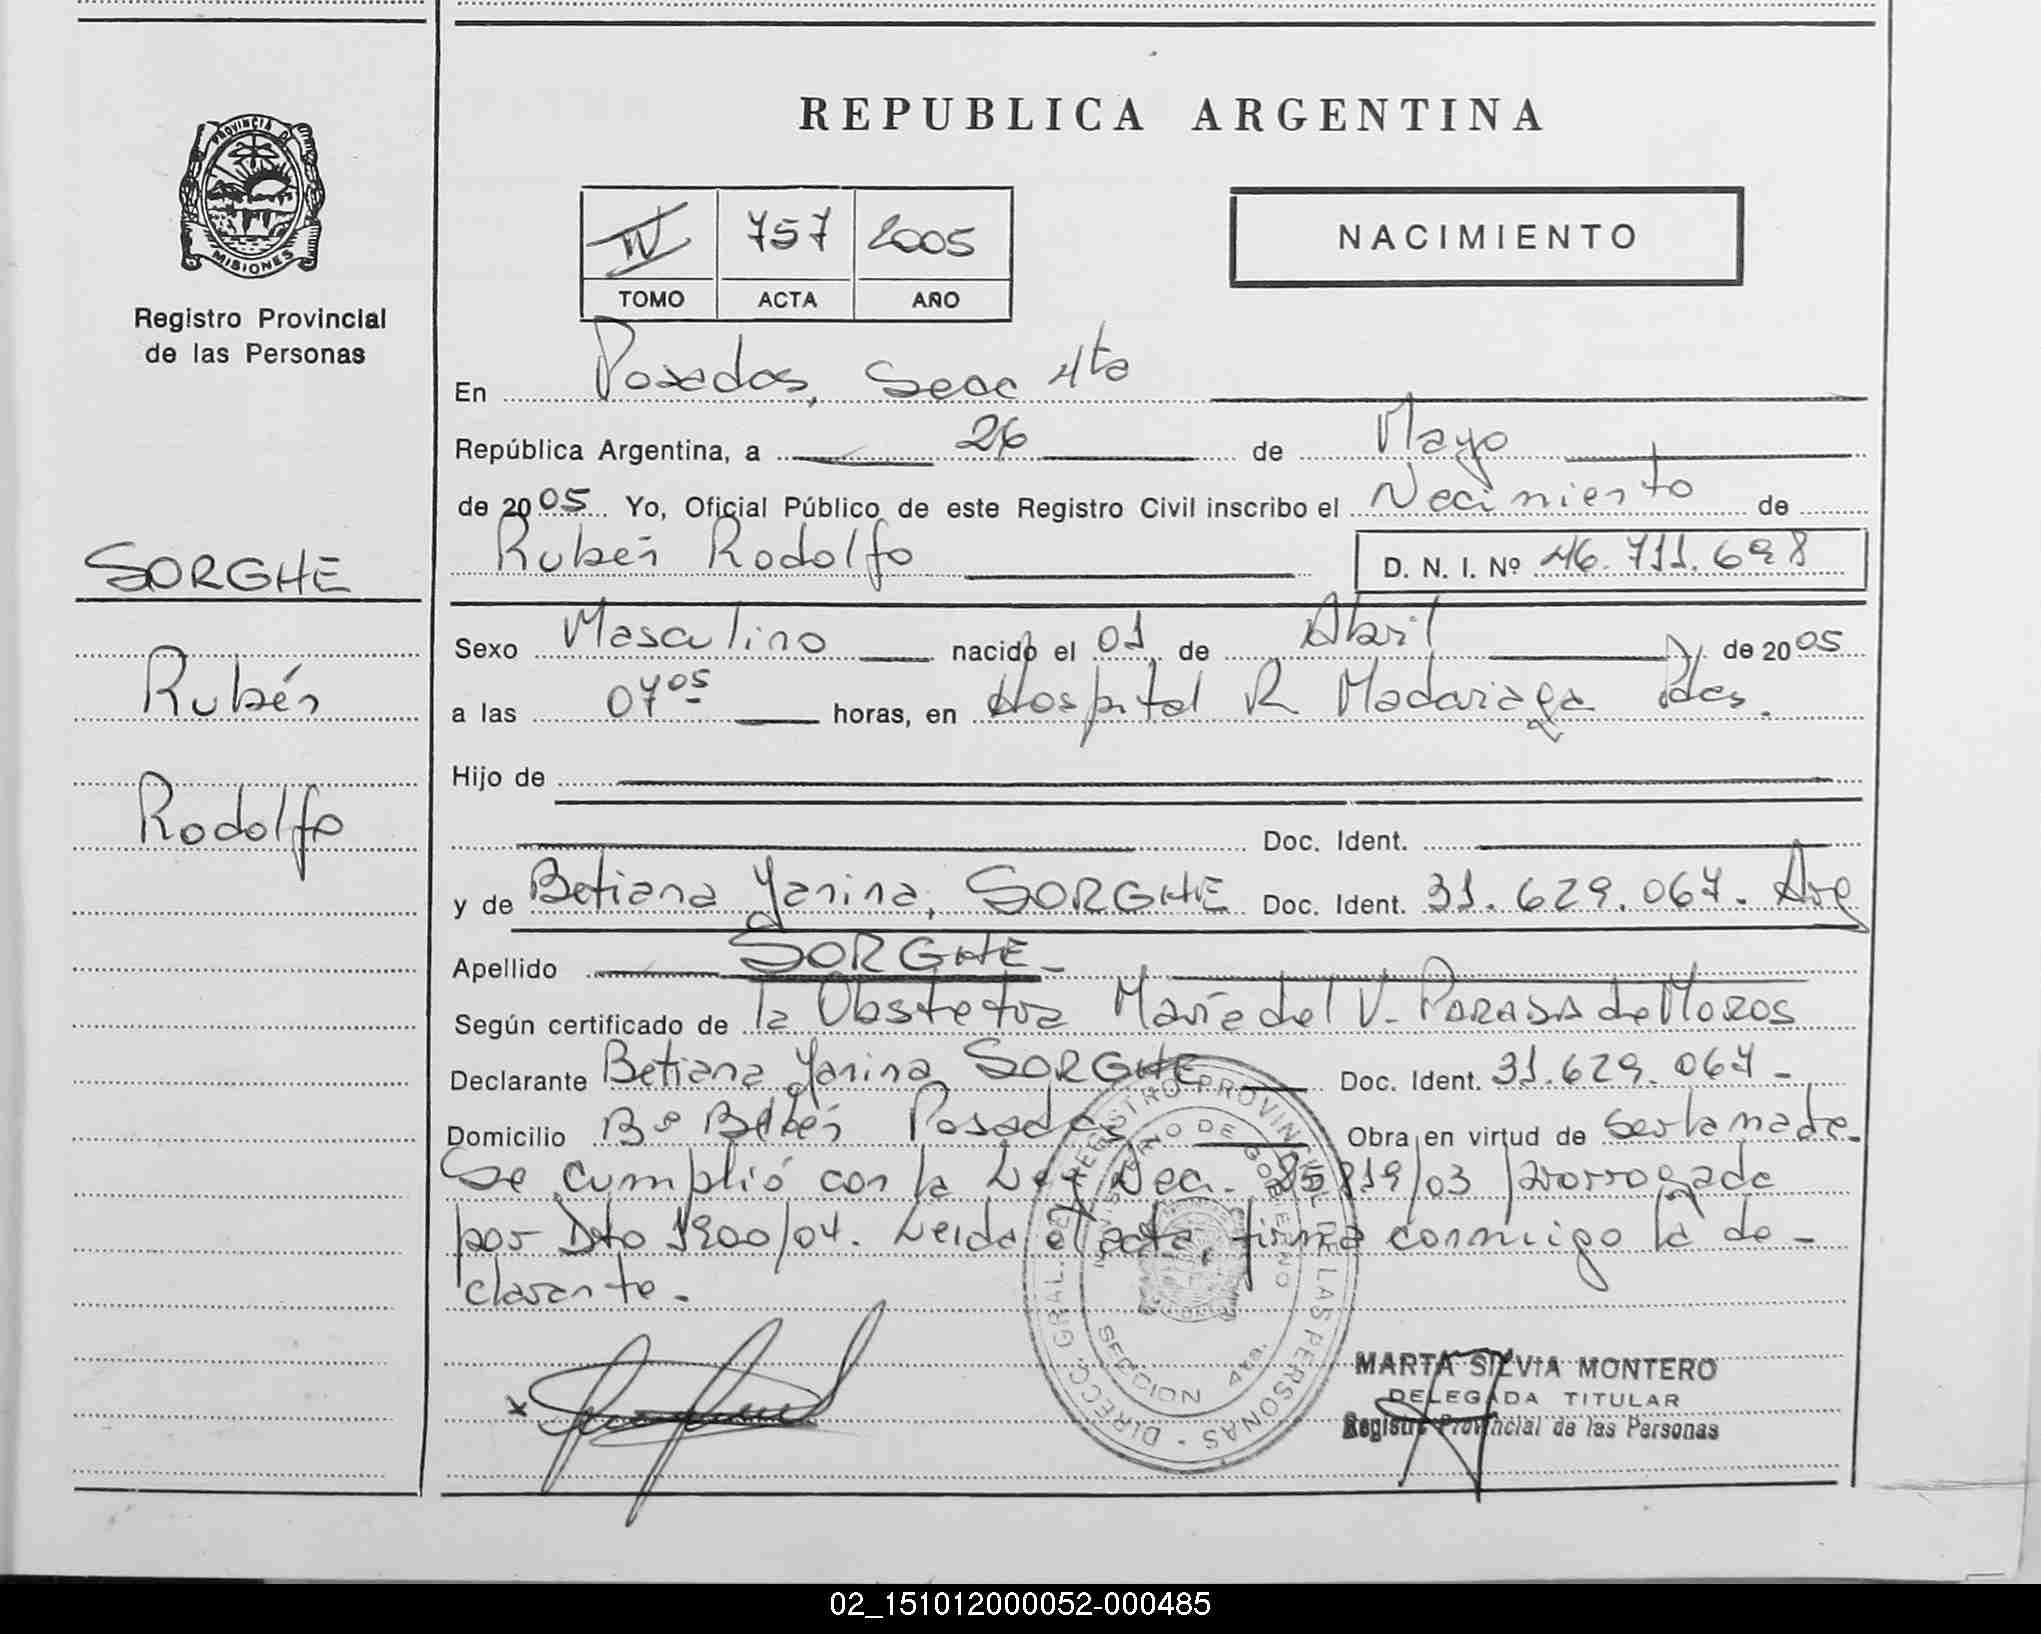 REPUBLICA ARGENTINA
PROVINCIA DE
MISIONES
Registro Provincial
de las Personas
IV 757 2005
TOMO ACTA AÑO
NACIMIENTO
En Posadas, Secc 4ta
República Argentina, a 26 de Mayo
de 2005 Yo, Oficial Público de este Registro Civil inscribo el Nacimiento de
Rubén Rodolfo D. N. I. Nº 46.711.698
SORGHE
Rubén
Rodolfo
Sexo Masculino nacido el 01 de Abril de 2005
a las 07 05 horas, en Hospital R Madariaga Pdas.
Hijo de
Doc. Ident.
y de Betiana Yanina, SORGHE Doc. Ident. 31.629.067. Arg
Apellido SORGHE
Según certificado de la Obstetra María del V. PARADA de Moros
Declarante Betiana Yanina SORGHE Doc. Ident. 31.629.067-
Domicilio Bº Belén Posadas Obra en virtud de ser la madre.
Se cumplió con la Ley Dec. 25819/03 prorrogada
por Dto 1900/04. Leida el acta, firma conmigo la de-
clarante.-
DIRECC. GRAL. DEL REGISTRO PROVINCIAL DE LAS PERSONAS
MINISTERIO DE GOBIERNO
SECCION 4ta.
x
MARTA SILVIA MONTERO
DELEGADA TITULAR
Registro Provincial de las Personas
02_151012000052-000485